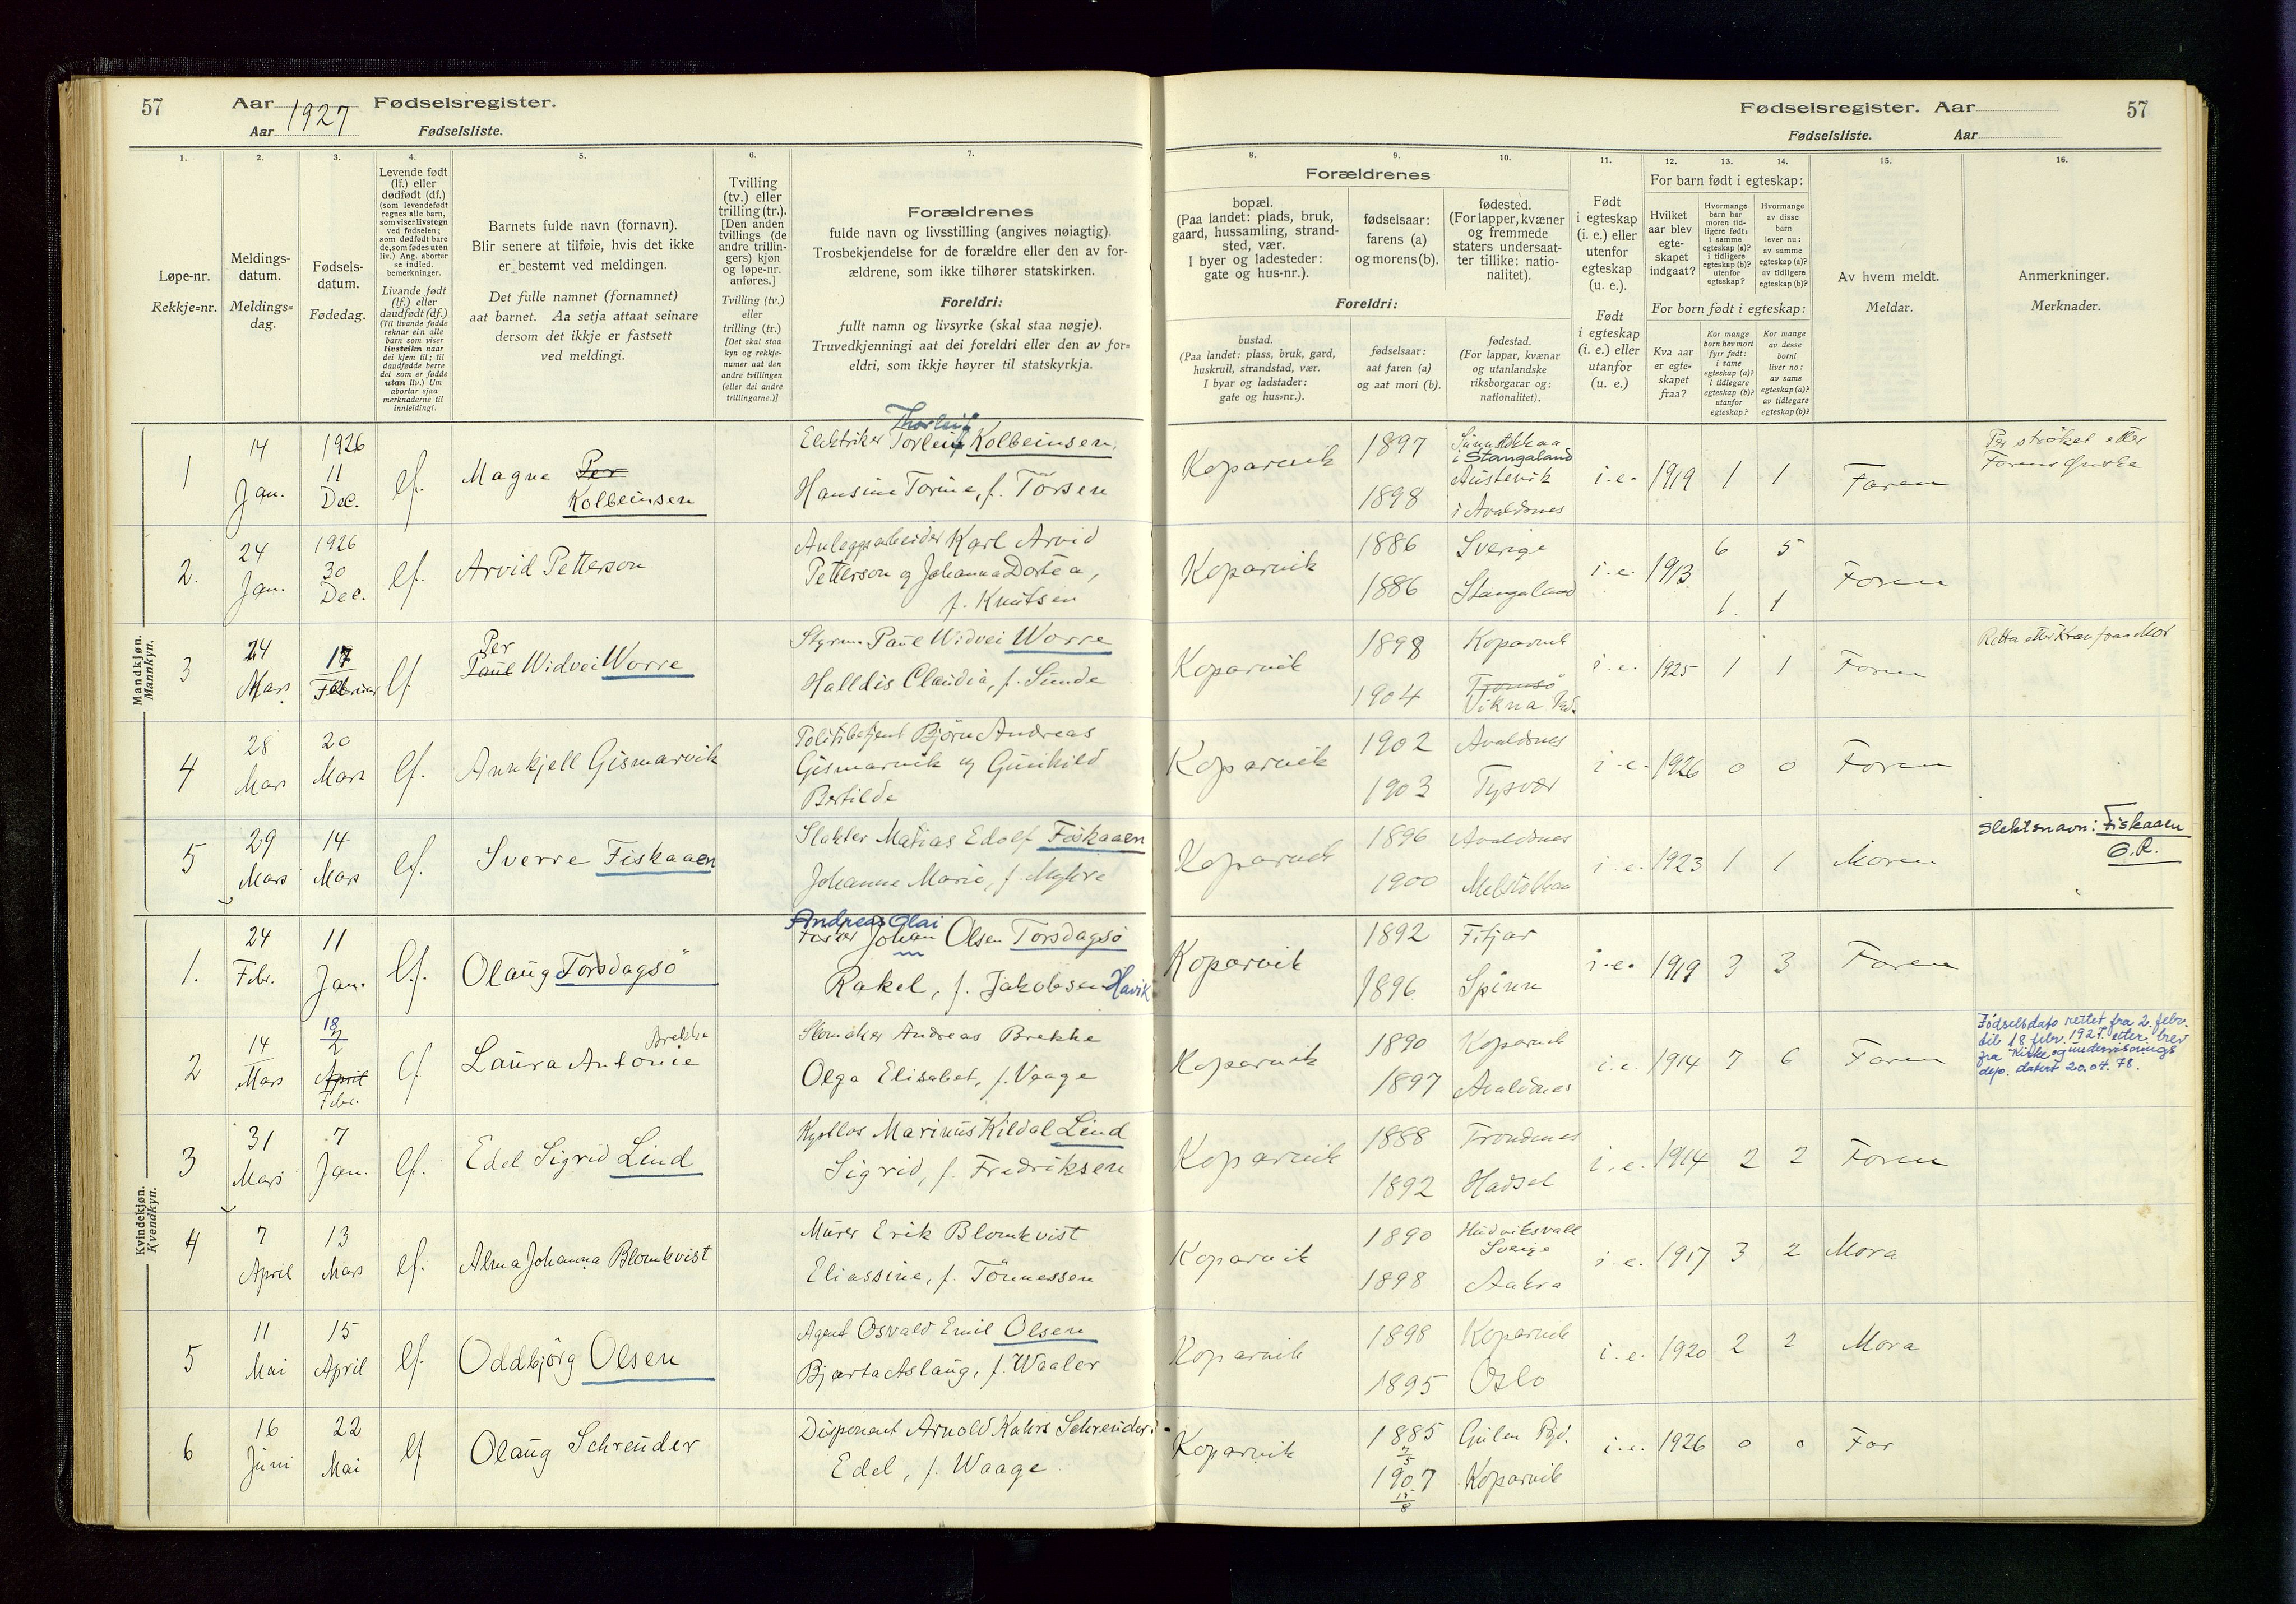 57 Aar 1927 Fødselsregister.
Aar Fødselsliste.
Fødselsregister. Aar 57
Fødselsliste. Aar
1. 2. 3. 4. 5. 6. 7.
Løpe-nr.
Rekkje=nr.
Meldings-
datum.
Meldings=
dag.
Fødsels-
datum.
Fødedag.
Levende født
(lf.) eller
dødfødt (df.)
(som levendefødt
regnes alle barn,
som viser livstegn
ved fødselen;
som dødfødt bare
de, som fødes uten
liv.) Ang. aborter
se indled.
bemerkninger.
Livande født
(lf.) eller
daudfødt (df.)
(Til livande fødde
reknar ein alle
barn som viser
livsteikn naar
dei kjem til; til
daudfødde berre
dei som er fødde
utan liv.) Um
abortar sjaa
merknaderne til
innleidingi.
Barnets fulde navn (fornavn).
Blir senere at tilføie, hvis det ikke
er bestemt ved meldingen.
Det fulle namnet (fornamnet)
aat barnet. Aa setja attaat seinare
dersom det ikkje er fastsett
ved meldingi.
Tvilling
(tv.) eller
trilling (tr.).
[Den anden
tvillings (de
andre trillin-
gers) kjøn
og løpe-nr.
anføres.]
Tvilling (tv.)
eller
trilling (tr.)
[Det skal staa
kyn og rekkje-
numer aat den
andre tvillingen
(eller dei andre
trillingarne.)]
Forældrenes
fulde navn og livsstilling (angives nøiagtig).
Trosbekjendelse for de forældre eller den av for-
ældrene, som ikke tilhører statskirken.
Foreldri:
fullt namn og livsyrke (skal staa nøgje).
Truvedkjenningi aat dei foreldri eller den av for=
eldri, som ikkje høyrer til statskyrkja.
8. 9. 10. 11. 12. 13. 14. 15. 16.
Forældrenes
bopæl.
(Paa landet: plads, bruk,
gaard, hussamling, strand-
sted, vær.
I byer og ladesteder:
gate og hus-nr.).
fødselsaar:
farens (a)
og morens (b).
fødested.
(For lapper, kvæner
og fremmede
staters undersaat-
ter tillike: natio-
nalitet).
Foreldri:
bustad.
(Paa landet: plass, bruk, gard,
huskrull, strandstad, vær.
I byar og ladstader:
gate og hus=nr.).
fødselsaar:
aat faren (a)
og aat mori (b).
fødestad.
(For lappar, kvænar
og utanlandske
riksborgarar og:
nationalitet).
Født
i egteskap
(i. e.) eller
utenfor
egteskap
(u. e.).
Født
i egteskap
(i. e.) eller
utanfor
(u. e.)
For barn født i egteskap:
Hvilket
aar blev
egte-
skapet
indgaat?
Hvormange
barn har
moren tid-
ligere født:
i samme
egteskap (a)?
i tidligere
egteskap (b)?
utenfor
egteskap?
Hvormange
av disse
barn
lever nu:
av samme
egteskap (a)?
av tidligere
egteskap (b)?
For born født i egteskap:
Kva aar
er egte=
skapet
fraa?
Kor mange
born hev mori
fyrr født:
i same
egteskap (a)?
i tidlegare
egteskap (b)?
utanfor
egteskap?
Kor mange
av desse
borni
liver no:
av same
egteskap (a)?
av tidlegare
egteskap (b)?
Av hvem meldt.
Meldar.
Anmerkninger.
Merknader.
Mandkjøn.
Mannkyn.
1 14 Jan. 1926 11 Dec. lf. Magne Per
Kolbeinsen
Thorleif
Elektriker Torleif Kolbeinsen,
Hansine Torine, f. Torsen
Koparvik 1897 i Stangaland
1898 Austevik
i Avaldsnes
i. e. 1919 1 1 Faren
Per strøket etter
Farens ønske
2. 24 Jan. 1926 30 Dec. lf. Arvid Petterson
Anleggsarbeider Karl Arvid
Petterson og Johanna Dortea,
f. Knutsen
Koparvik 1886 Sverige
1886 Stangaland
i. e. 1913 6 5
1. 1 Faren
3 24 Mars 17 Februar lf Per
Paul Widvei Worre
Styrm. Paul Widvei Worre
Halldis Claudia, f. Sunde
Koparvik 1898 Koparvik
1904 Tromsö
Vikna
i. e. 1925 1 1 Faren
Retta etter Krav fraa Mor
4 28 Mars 20 Mars lf. Annkjell Gismarvik
Politibetjent Bjørn Andreas
Gismarvik og Gunhild
Bertilde
Koparvik 1902 Avaldsnes
1903 Tysvær
i. e. 1926 0 0 Faren
5 29 Mars 14 Mars lf. Sverre Fiskaaen
Slakter Matias Edolf Fiskaaen
Johanne Marie, f. Myhre
Koparvik 1896 Avaldsnes
1900
i. e. 1923 1 1 Moren
Slektsnavn: Fiskaaen
O.R.
Kvindekjøn.
Kvendkyn.
1. 24 Febr. 11 Jan. lf. Olaug Torsdagsö
Andreas Olai
Fisker Johan Olsen Torsdagsö
Rakel, f. Jakobsen Havik
Koparvik 1892 Fitjar
1896 Spinn
i. e. 1919 3 3 Faren
2 14 Mars 18 2 April
Febr. lf Brekke
Laura Antonie
Skomaker Andreas Brekke
Olga Elisabet, f. Vaage
Koparvik 1890 Koparvik
1897 Avaldsnes
i. e. 1914 7 6 Faren
Fødselsdato rettet fra 2. febr.
til 18 febr. 1927 etter brev
fra Kirke og undervisnings
dep. datert 20.04.78.
3 31 Mars 7 Jan. lf. Edel Sigrid Lind
Marinus Kildal Lind
Sigrid, f. Fredriksen
Koparvik 1888 Trondenes
1892 Hadsel
i. e. 1914 2 2 Faren
4 7 April 13 Mars lf. Alma Johanna Blomkvist
Murer Erik Blomkvist
Eliassine, f. Tönnessen
Koparvik 1890 Hudviksvall
Sverige
1898 Aakra
i. e. 1917 3 2 Mora
5 11 Mai 15 April lf. Oddbjörg Olsen
Agent Osvald Emil Olsen
Bjarta Aslaug, f. Waaler
Koparvik 1898 Koparvik
1895 Oslo
i. e. 1920 2 2 Mora
6 16 Juni 22 Mai lf Olaug Schreuder
Disponent Arnold Kahrs Schreuder
Edel, f. Waage
Koparvik 1885 Gulen
7/5
1907 Koparvik
i. e. 1926 0 0 Far